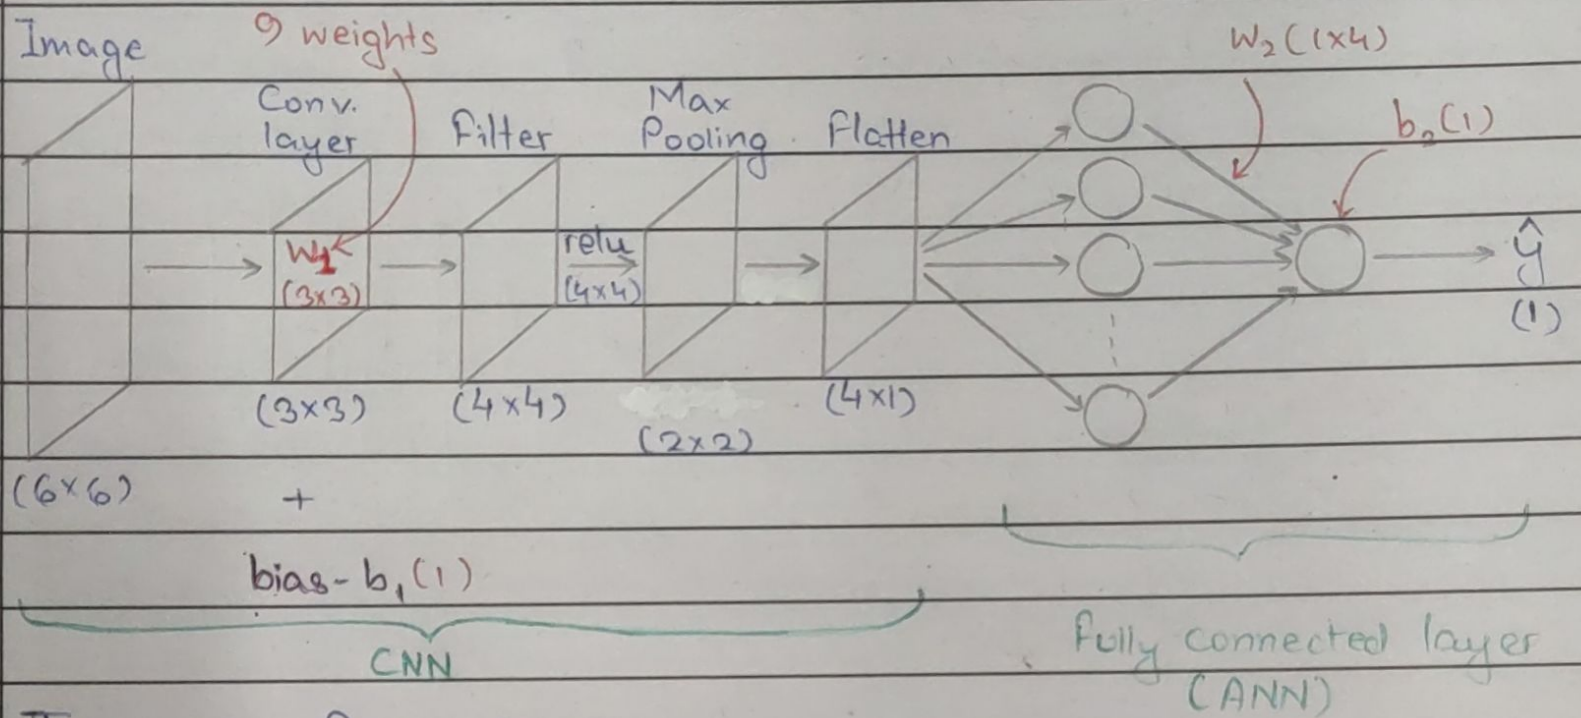 Image
9 weights
W₂ (1×4)
Conv. layer
Filter
Max Pooling
Flatten
b₂ (1)
W₁
(3×3)
relu
(4×4)
ŷ
(1)
(3×3)
(4×4)
(2×2)
(4×1)
(6×6)
+
bias - b₁ (1)
CNN
Fully connected layer
(ANN)